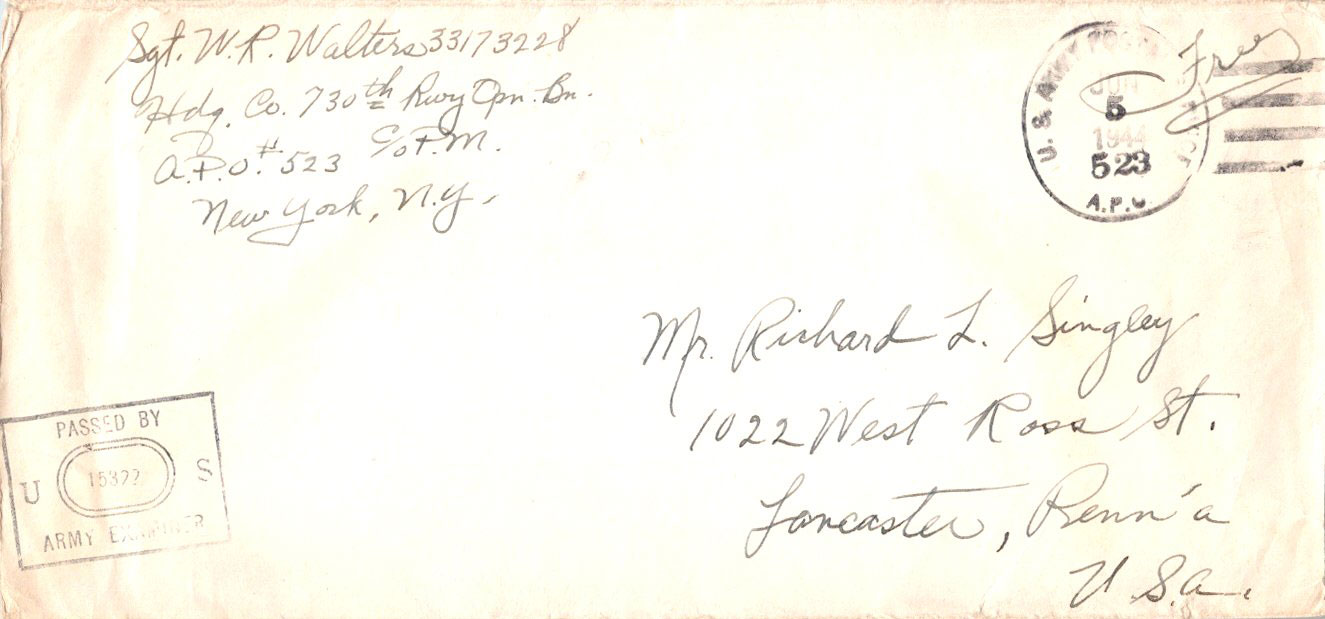 Sgt. W.R. Walters 33173228
Hdq. Co. 730th Rwy Opn. Bn.
A.P.O. #523 c/o P.M.
New York, N.Y.
U. S. ARMY POSTAL
JUN
5
1944
523
A.P.O.
Free
Mr. Richard L. Singley
1022 West Ross St.
Lancaster, Penn'a
U.S.A.
PASSED BY
U 15322 S
ARMY EXAMINER